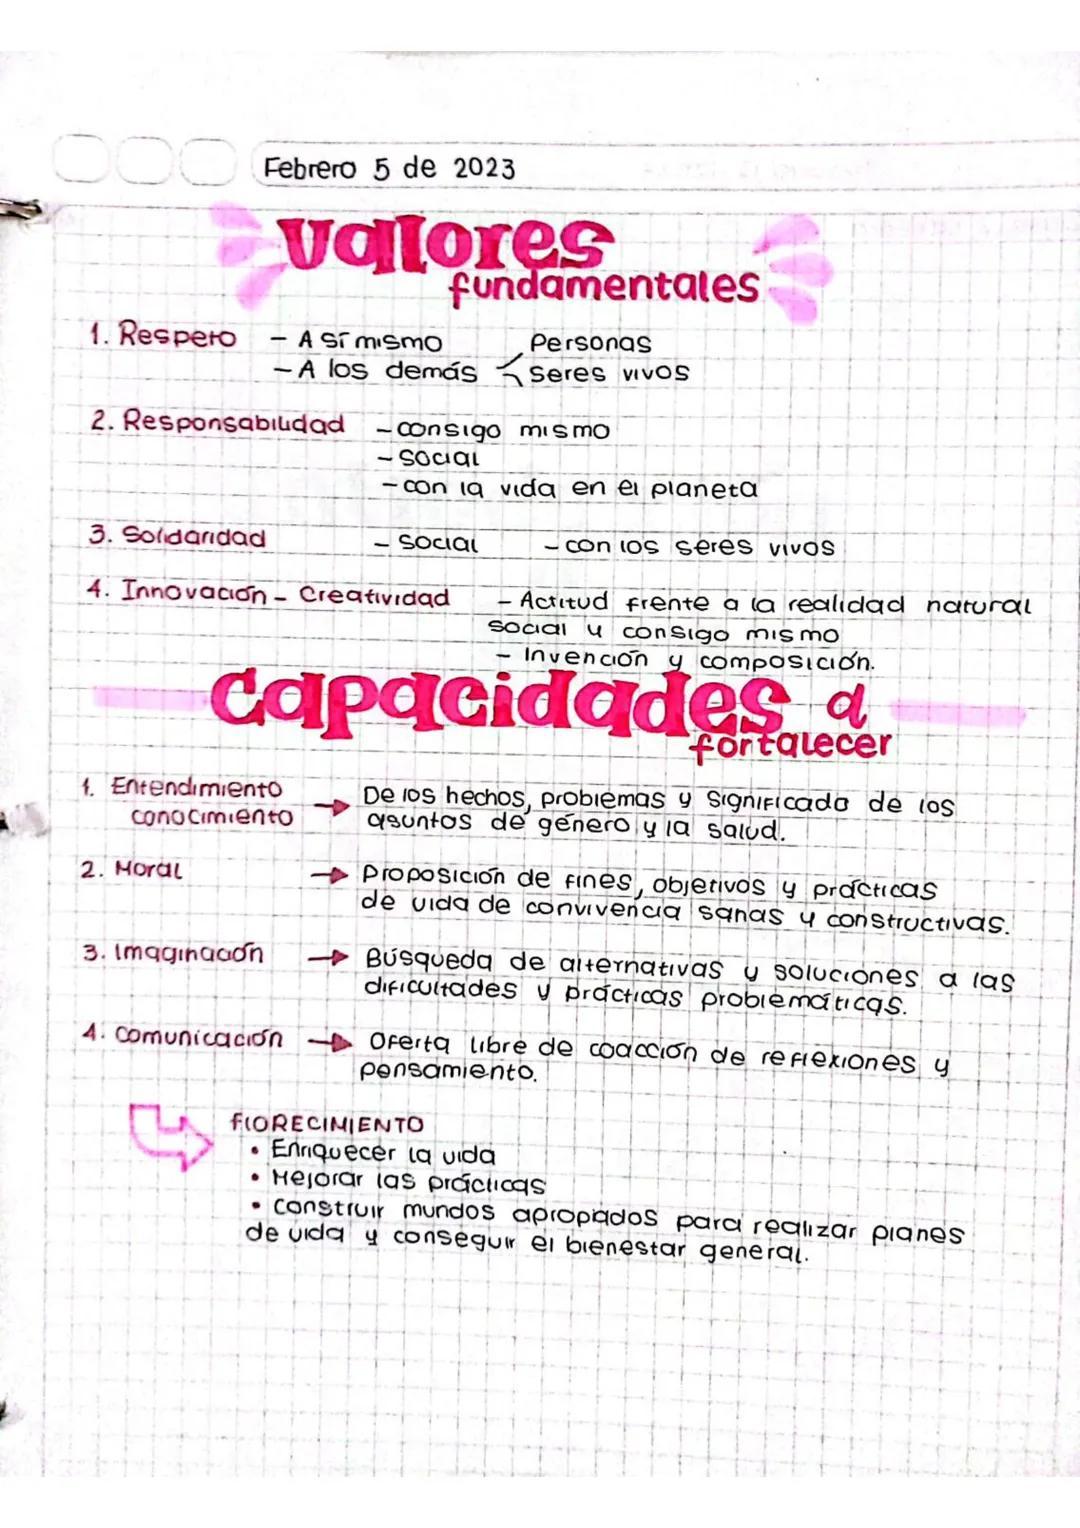 Febrero 5 de 2023
Valores
fundamentales
1. Respeto - A sí mismo Personas
- A los demás < seres vivos
2. Responsabilidad - consigo mismo
- social
- con la vida en el planeta
3. Solidaridad - social - con los seres vivos
4. Innovación - Creatividad - Actitud frente a la realidad natural
social y consigo mismo
- Invención y composición.
Capacidades a
fortalecer
1. Entendimiento → De los hechos, problemas y significado de los
conocimiento asuntos de género y la salud.
2. Moral → Proposición de fines, objetivos y prácticas
de vida de convivencia sanas y constructivas.
3. Imaginación → Búsqueda de alternativas y soluciones a las
dificultades y prácticas problemáticas.
4. Comunicación → Oferta libre de coacción de reflexiones y
pensamiento.
FLORECIMIENTO
• Enriquecer la vida
• Mejorar las prácticas
• Construir mundos apropados para realizar planes
de vida y conseguir el bienestar general.